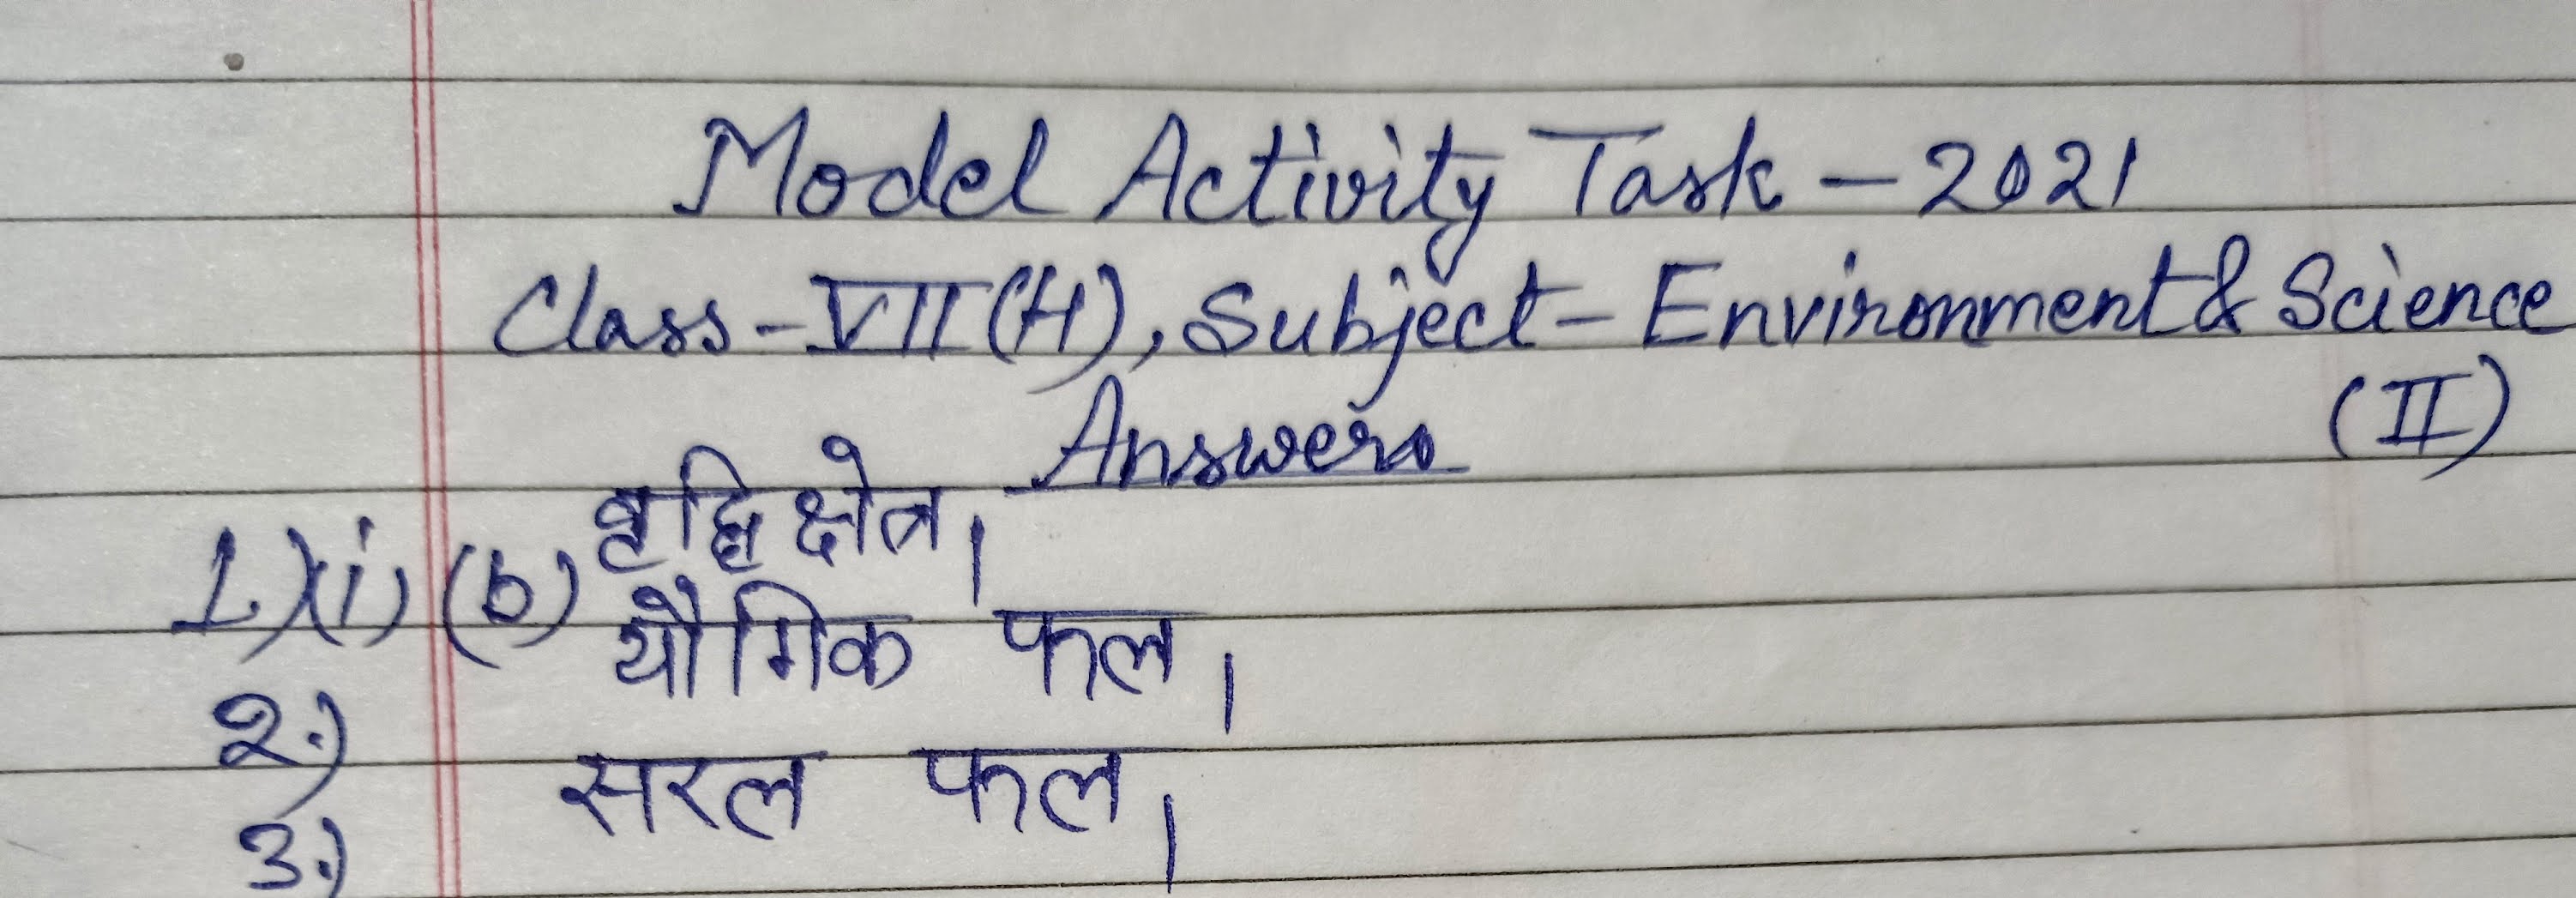 Model Activity Task - 2021
Class - VII (H), Subject - Environment & Science
(II)
Answers
1.)(i) (b) वृद्धि क्षेत्र।
2.) यौगिक फल।
3.) सरल फल।